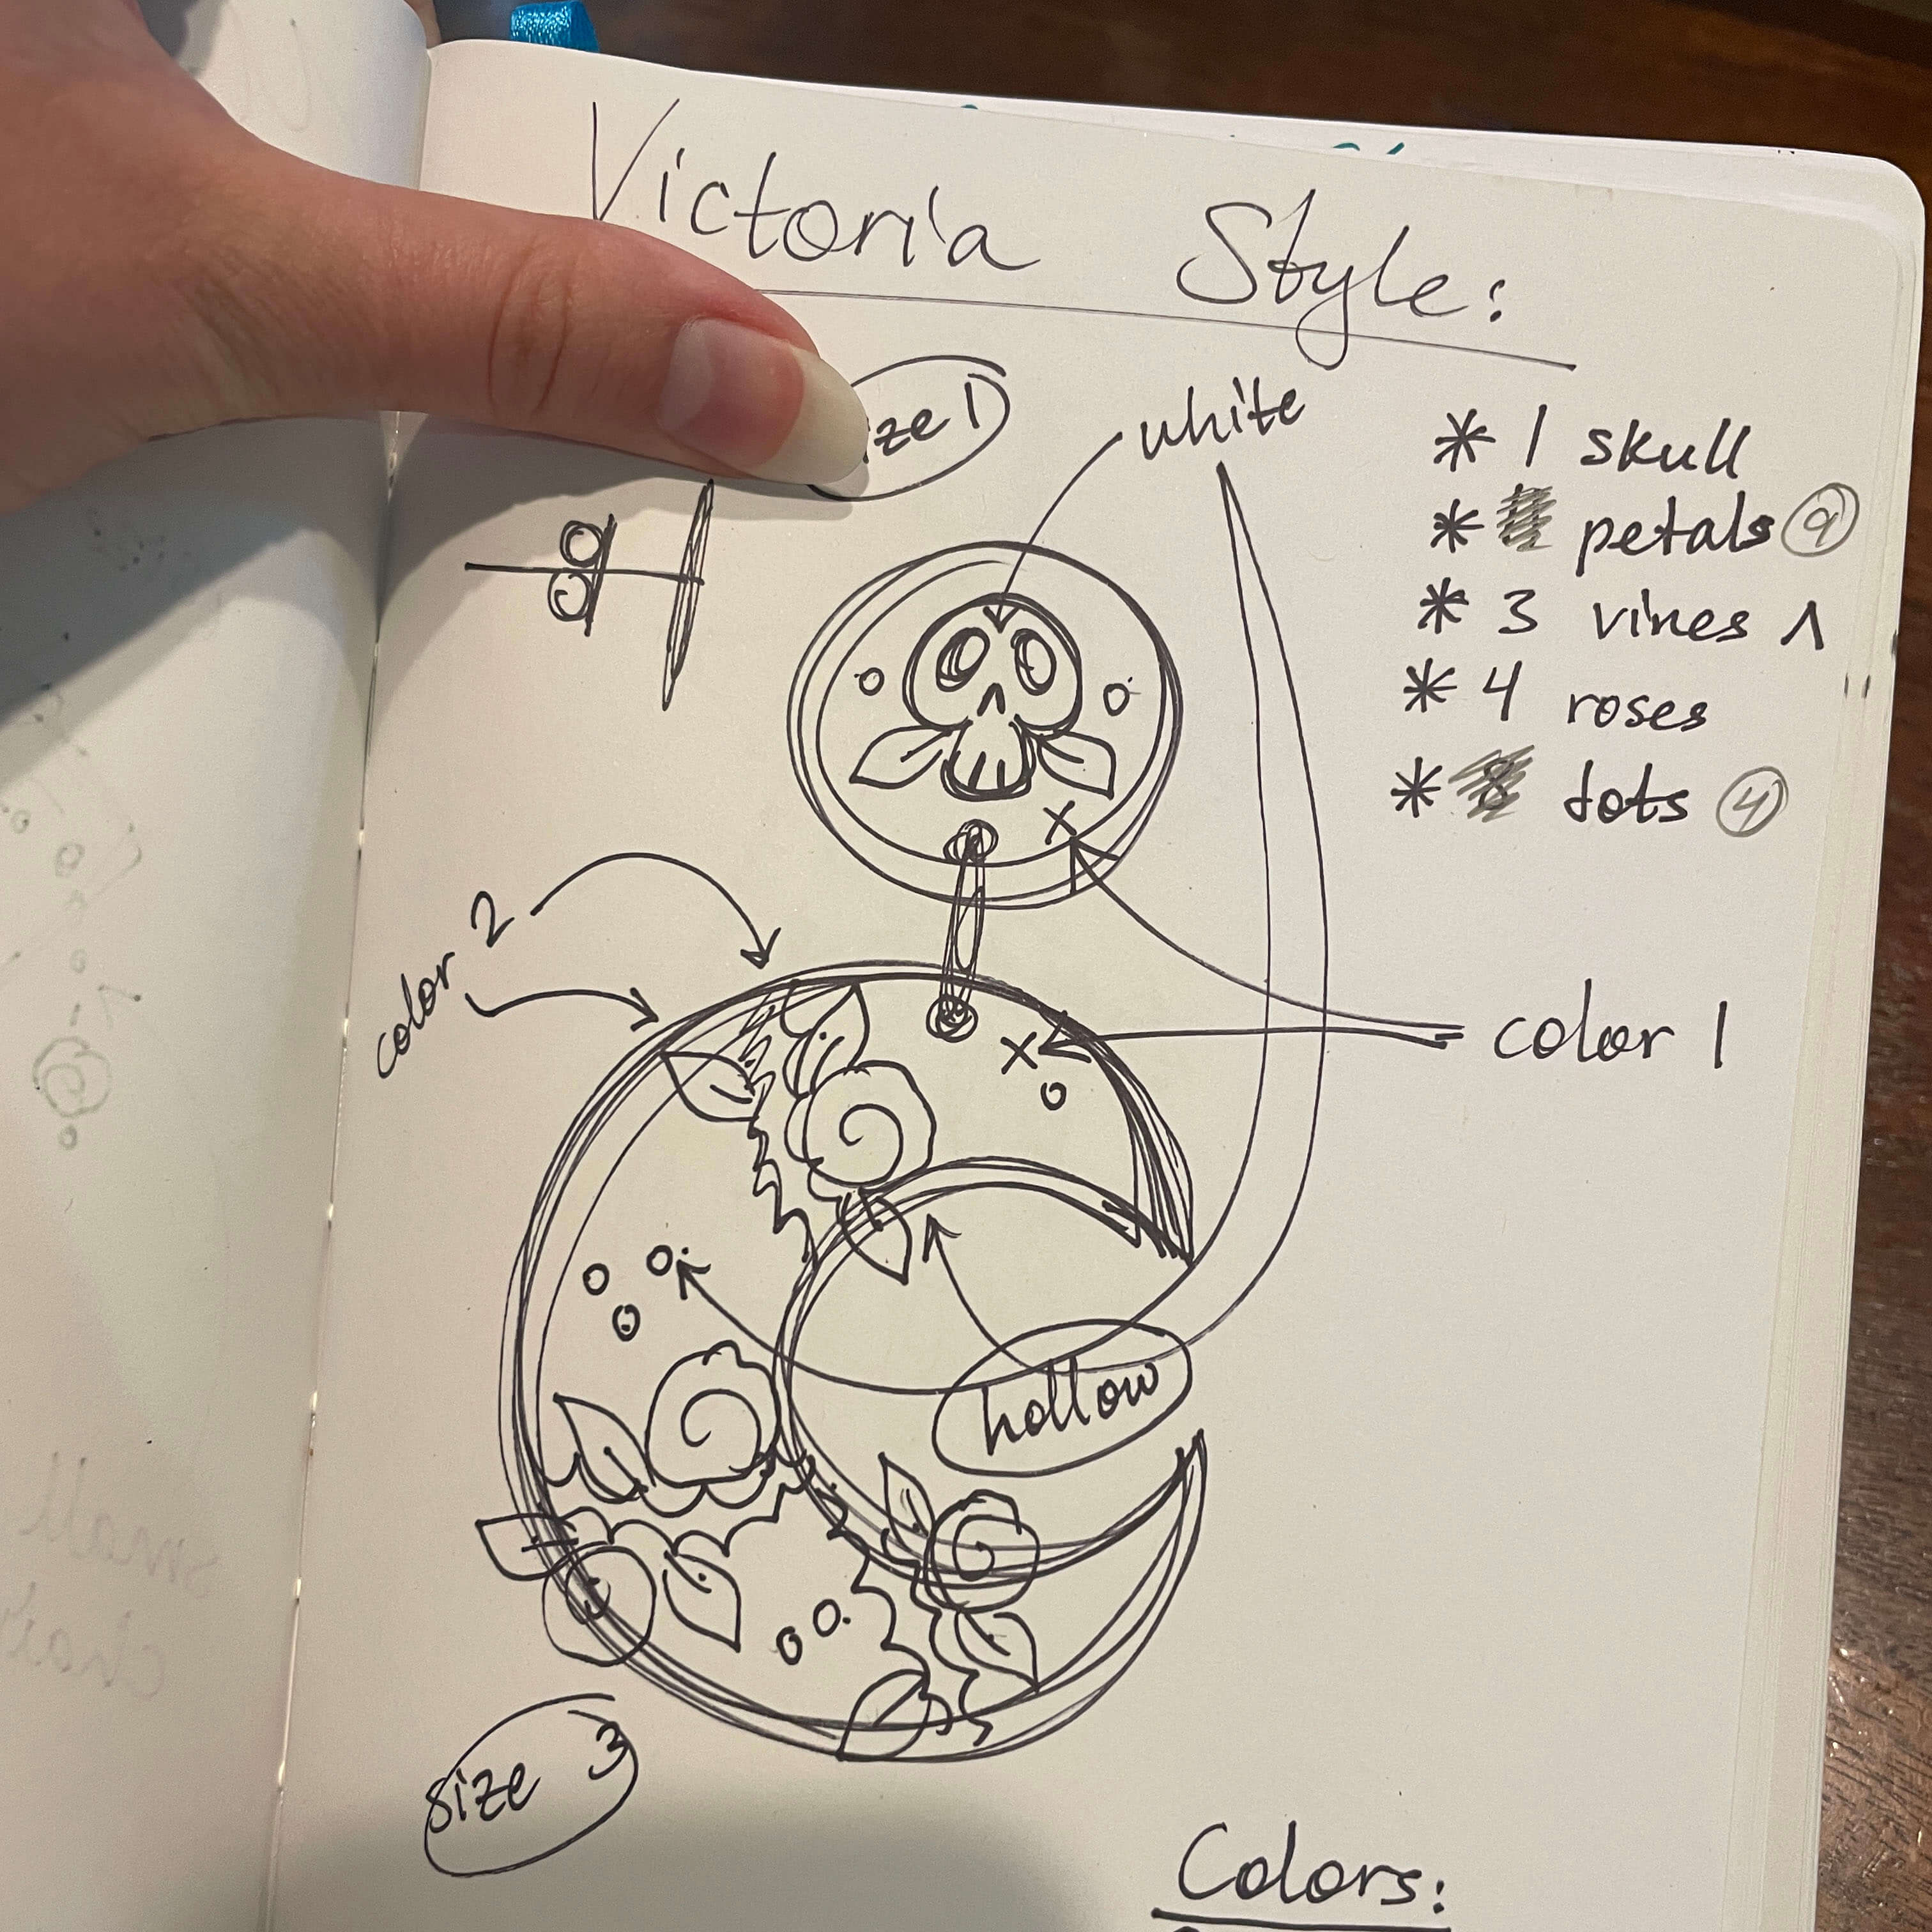 Victoria Style:
ize 1
white
* 1 skull
* petals 9
* 3 vines
* 4 roses
* dots 4
color 2
color 1
hollow
size 3
Colors:
small
chai